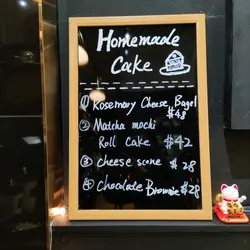 Homemade
Cake
① Rosemary Cheese Bagel
$48
② Matcha mochi
Roll Cake $42
③ cheese scone $28
④ Chocolate Brownie $28